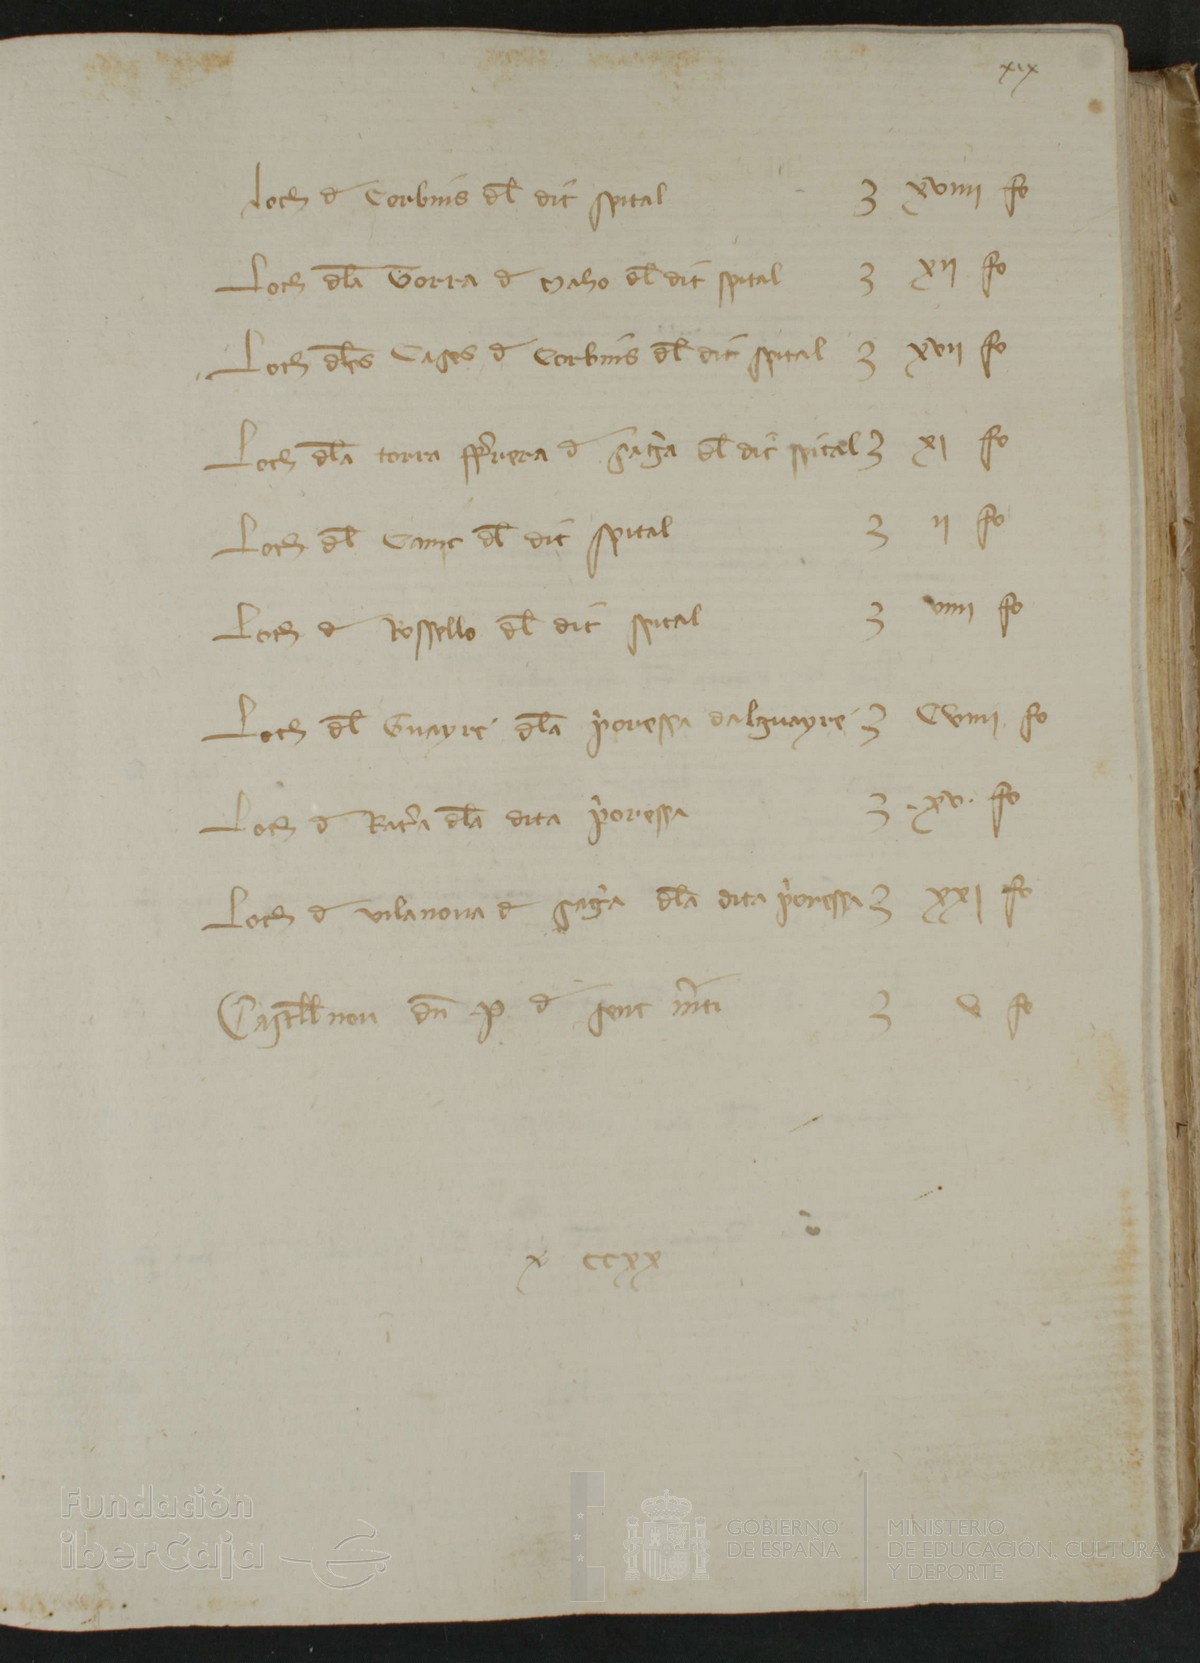 xix
Loch d Corbins dl dit spital 3 xviiii fo
Loch dla Torra d Maho dl dit spital 3 xii fo
Loch dles Cases d Corbins dl dit spital 3 xvii fo
Loch dla torra ffrera d sagra dl dit spital 3 xi fo
Loch dl dit spital 3 ii fo
Loch d Rossello dl dit spital 3 viiii fo
Loch dl Guayre dla poressa dalguayre 3 Cviiii fo
Loch d Ratera dla dita poressa 3 xv fo
Loch d vilanova d sagra dla dita poressa 3 xxi fo
Castell nou dn p d sent 3 v fo
x ccxx
Fundación
iberCaja
GOBIERNO
DE ESPAÑA
MINISTERIO
DE EDUCACIÓN, CULTURA
Y DEPORTE